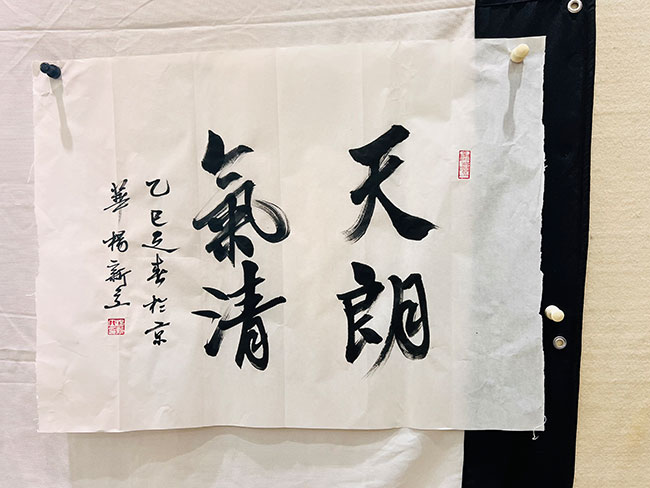 天朗
氣清
乙巳之春於京
華楊新立